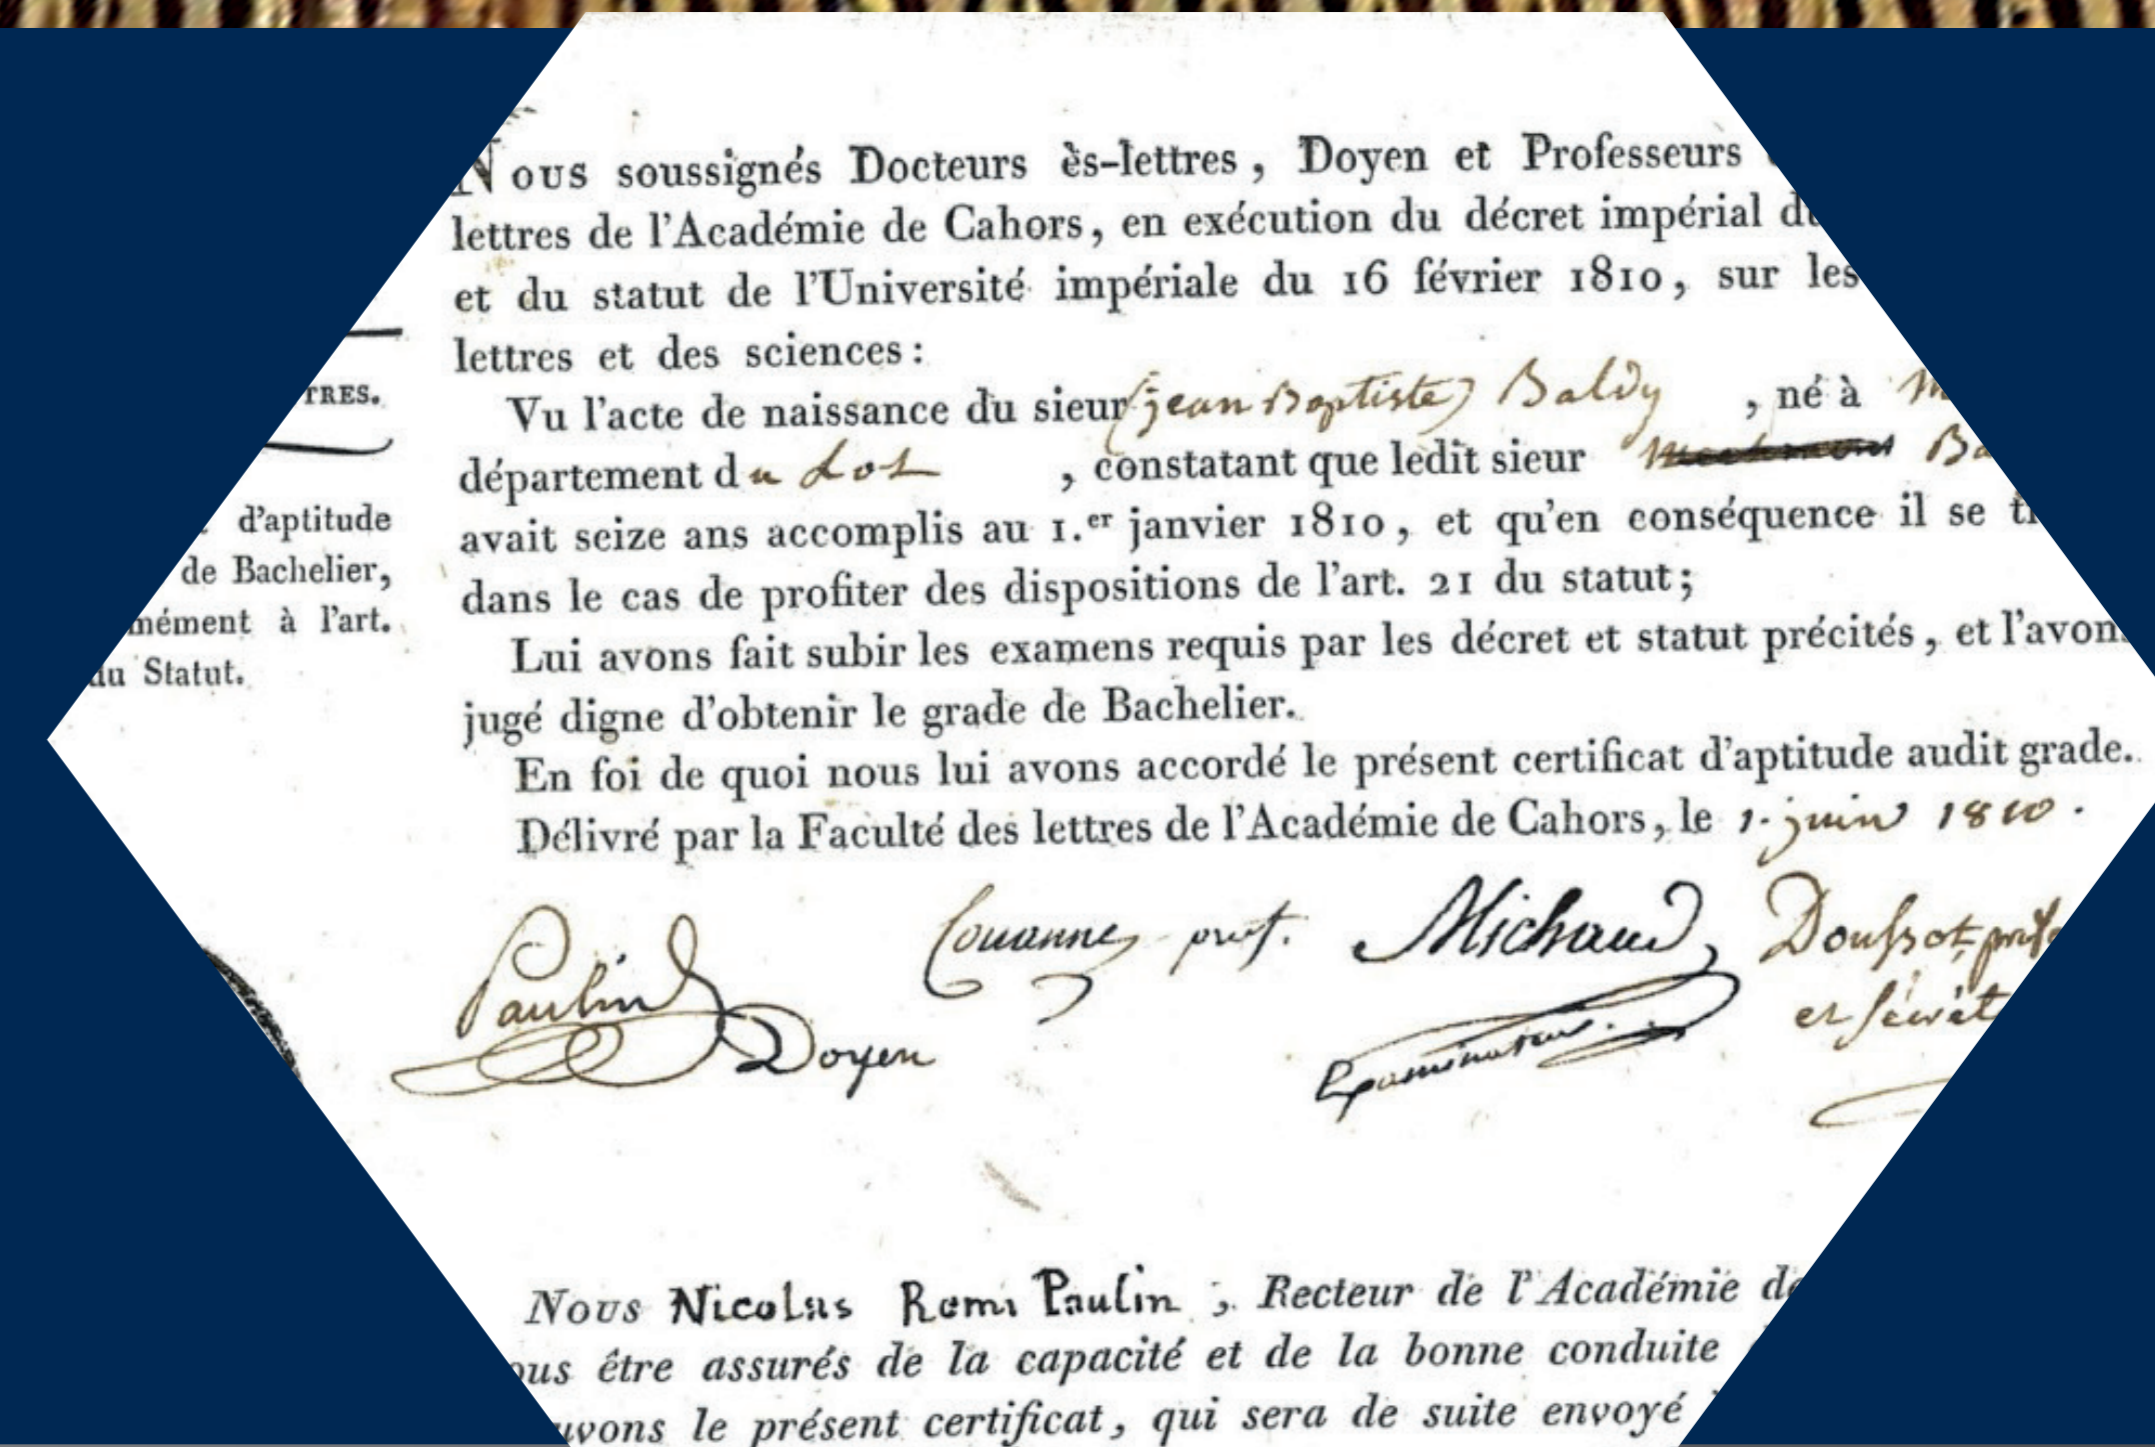 Nous soussignés Docteurs ès-lettres, Doyen et Professeurs
lettres de l'Académie de Cahors, en exécution du décret impérial du
et du statut de l'Université impériale du 16 février 1810, sur les
lettres et des sciences:
Vu l'acte de naissance du sieur (jean Baptiste) Baldy, né à
département du Lot, constatant que ledit sieur
avait seize ans accomplis au 1.er janvier 1810, et qu'en conséquence il se
dans le cas de profiter des dispositions de l'art. 21 du statut;
Lui avons fait subir les examens requis par les décret et statut précités, et l'avons
jugé digne d'obtenir le grade de Bachelier.
En foi de quoi nous lui avons accordé le présent certificat d'aptitude audit grade.
Délivré par la Faculté des lettres de l'Académie de Cahors, le 1. juin 1810.
TRES.
d'aptitude
de Bachelier,
mément à l'art.
du Statut.
Paulin Doyen
prof.
Michaud
Examinateur
et
Nous Nicolas Remi Paulin, Recteur de l'Académie de
ous être assurés de la capacité et de la bonne conduite
uvons le présent certificat, qui sera de suite envoyé